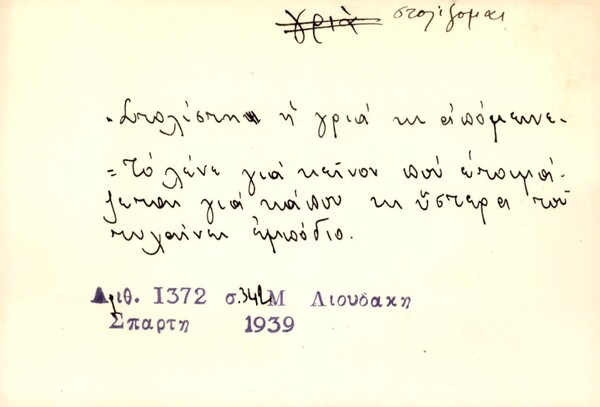 γριὰ στολίζομαι
. Στολίστη ἡ γριά κι ἀπόμεινε.
= Τό λένε γιά κεῖνον πού ἑτοιμά-
ζεται γιά κάπου κι ὕστερα τοῦ
τυχαίνει ἐμπόδιο.
Αριθ. 1372 σ. 342 Μ Λιουδακη
Σπαρτη 1939